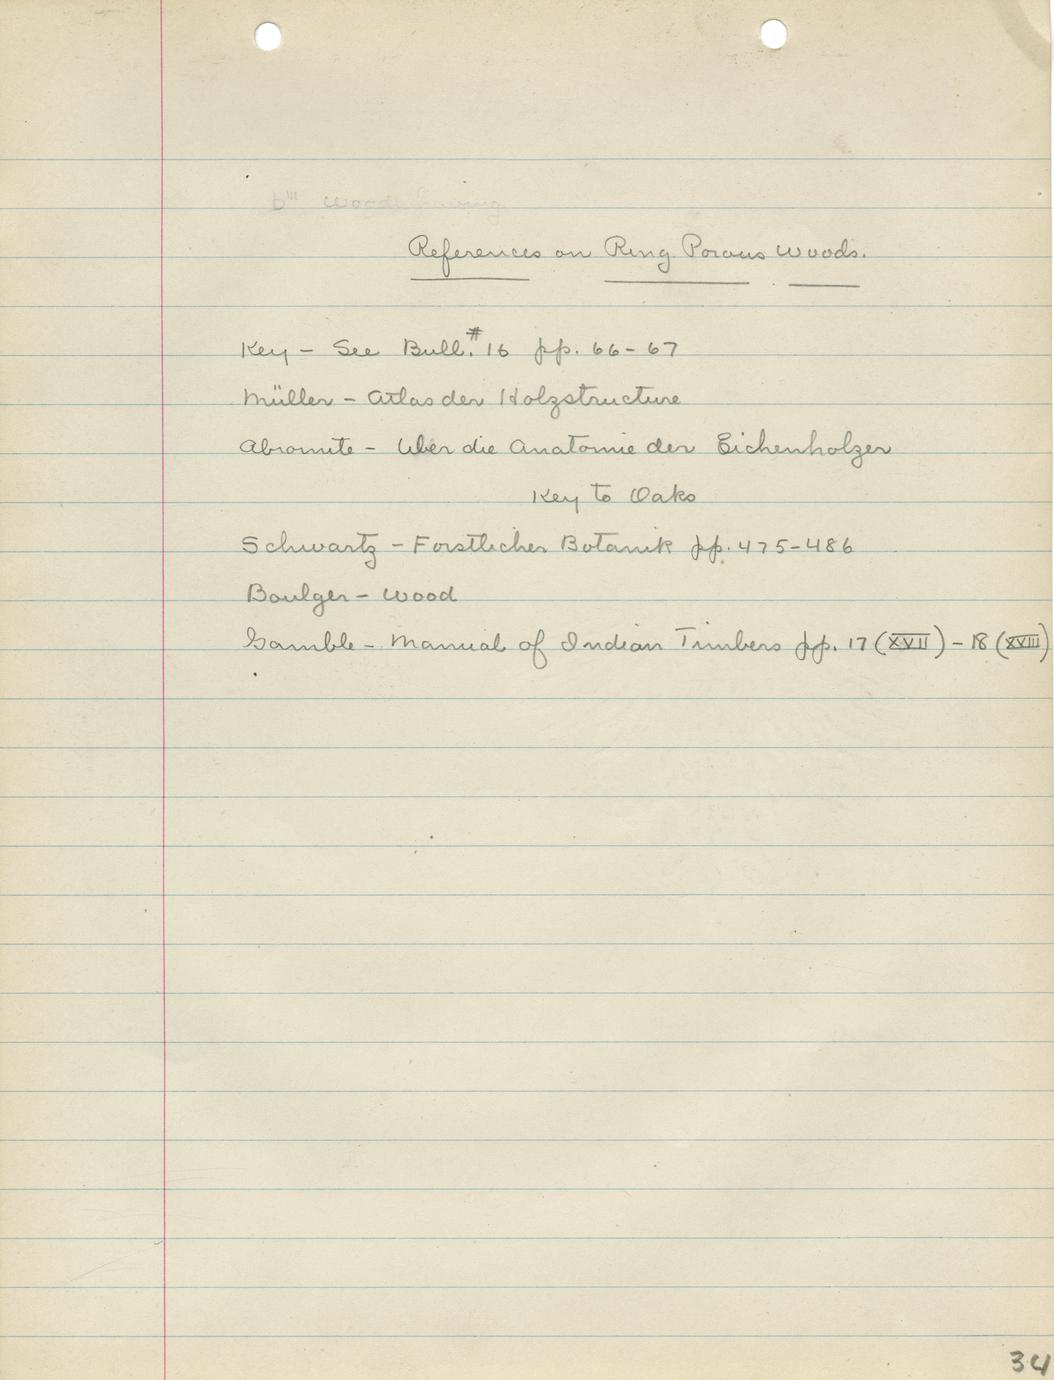 b''' Woods having
References on Ring Porous Woods.
Key - See Bull. # 16 pp. 66-67
Müller - Atlas der Holzstructure
Abromite - Über die Anatomie der Eichenholzer
Key to Oaks
Schwartz - Forstlicher Botanik pp. 475-486
Boulger - Wood
Gamble - Manual of Indian Timbers pp. 17 (XVII) - 18 (XVIII)
34